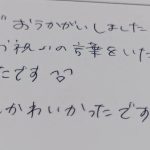 おうかがいしました
お祝いの言葉をいた
たです
かわいかったです